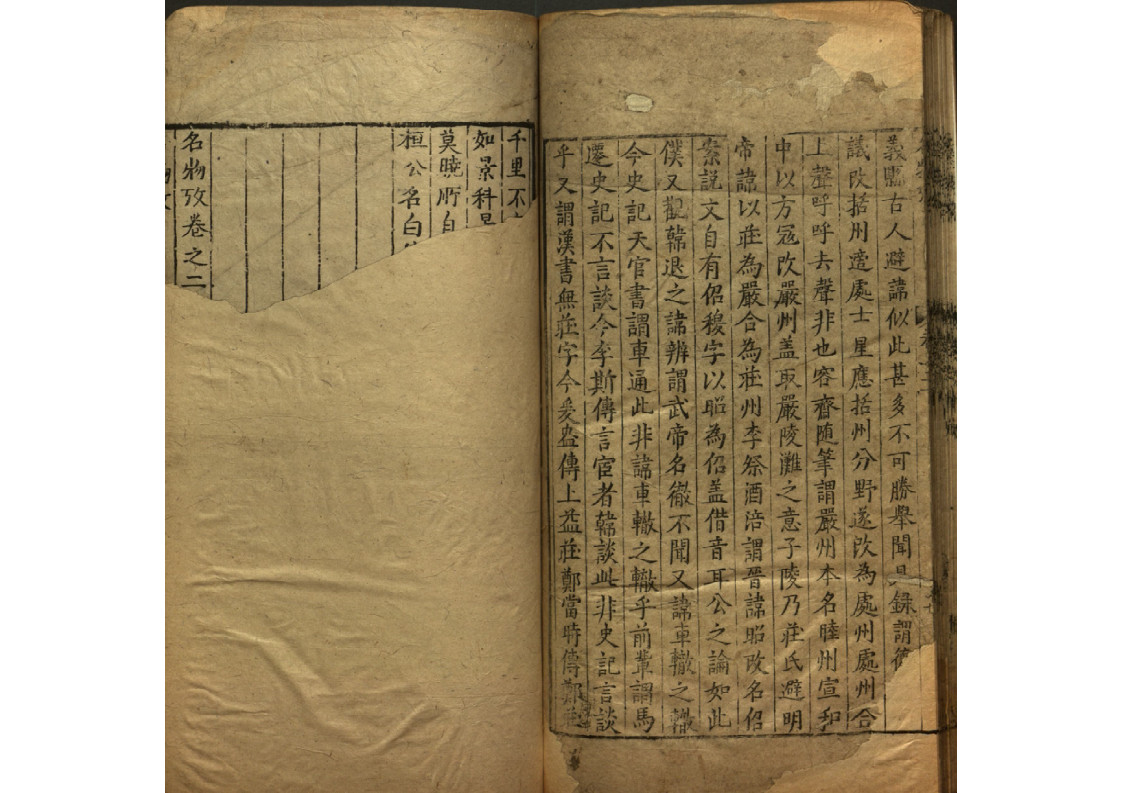 義鬷古人避諱似此甚多不可勝舉聞見錄謂
議改括州遣處士星應括州分野遂改為處州處州合
上聲呼呼去聲非也容齋隨筆謂嚴州本名睦州宣和
中以方冦改嚴州盖取嚴陵灘之意子陵乃莊氏避明
帝諱以莊為嚴合為莊州李祭酒涪謂晉諱昭改名佋
案說文自有佋穆字以昭為佋盖借音耳公之論如此
僕又觀韓退之諱辨謂武帝名徹不聞又諱車轍之轍
今史記天官書謂車通此非諱車轍之轍乎前輩謂馬
遷史記不言談今李斯傳言宦者韓談此非史記言談
乎又謂漢書無莊字今爰盎傳上益莊鄭當時傳鄭莊
千里不
如景科
莫曉所自
桓公名白
名物攷卷之二